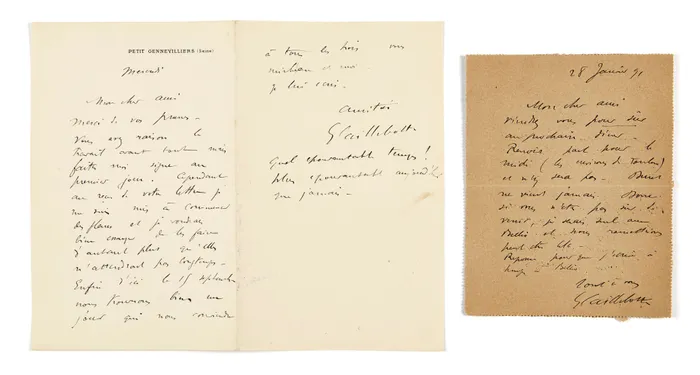 PETIT GENNEVILLIERS (Seine)
Mercredi
Mon cher ami
Merci de vos prunes -
Vous avez raison le
travail avant tout mais
faites moi signe au
premier jour. Cependant
au reçu de votre lettre je
me suis mis à commencer
des fleurs et je voudrais
bien essayer de les faire
d'autant plus qu'elles
n'attendront pas longtemps -
Enfin d'ici le 15 septembre
nous trouverons bien un
jour qui nous convienne
à tous les trois vous
et moi -
Amitiés
G Caillebotte
Quel épouvantable temps !
plus épouvantable aujourd'hui
que jamais -
28 Janvier 91
Mon cher ami
viendrez vous pour sûr
au prochain dîner -
Renoir part pour le
midi (les environs de Toulon)
et n'y sera pas -
ne vient jamais. Donc
si vous n'êtes pas sûr de
venir, je serais seul avec
et nous remettrions
peut être le
Réponse pour que j'écrive à
temps à
Tout à vous
G Caillebotte